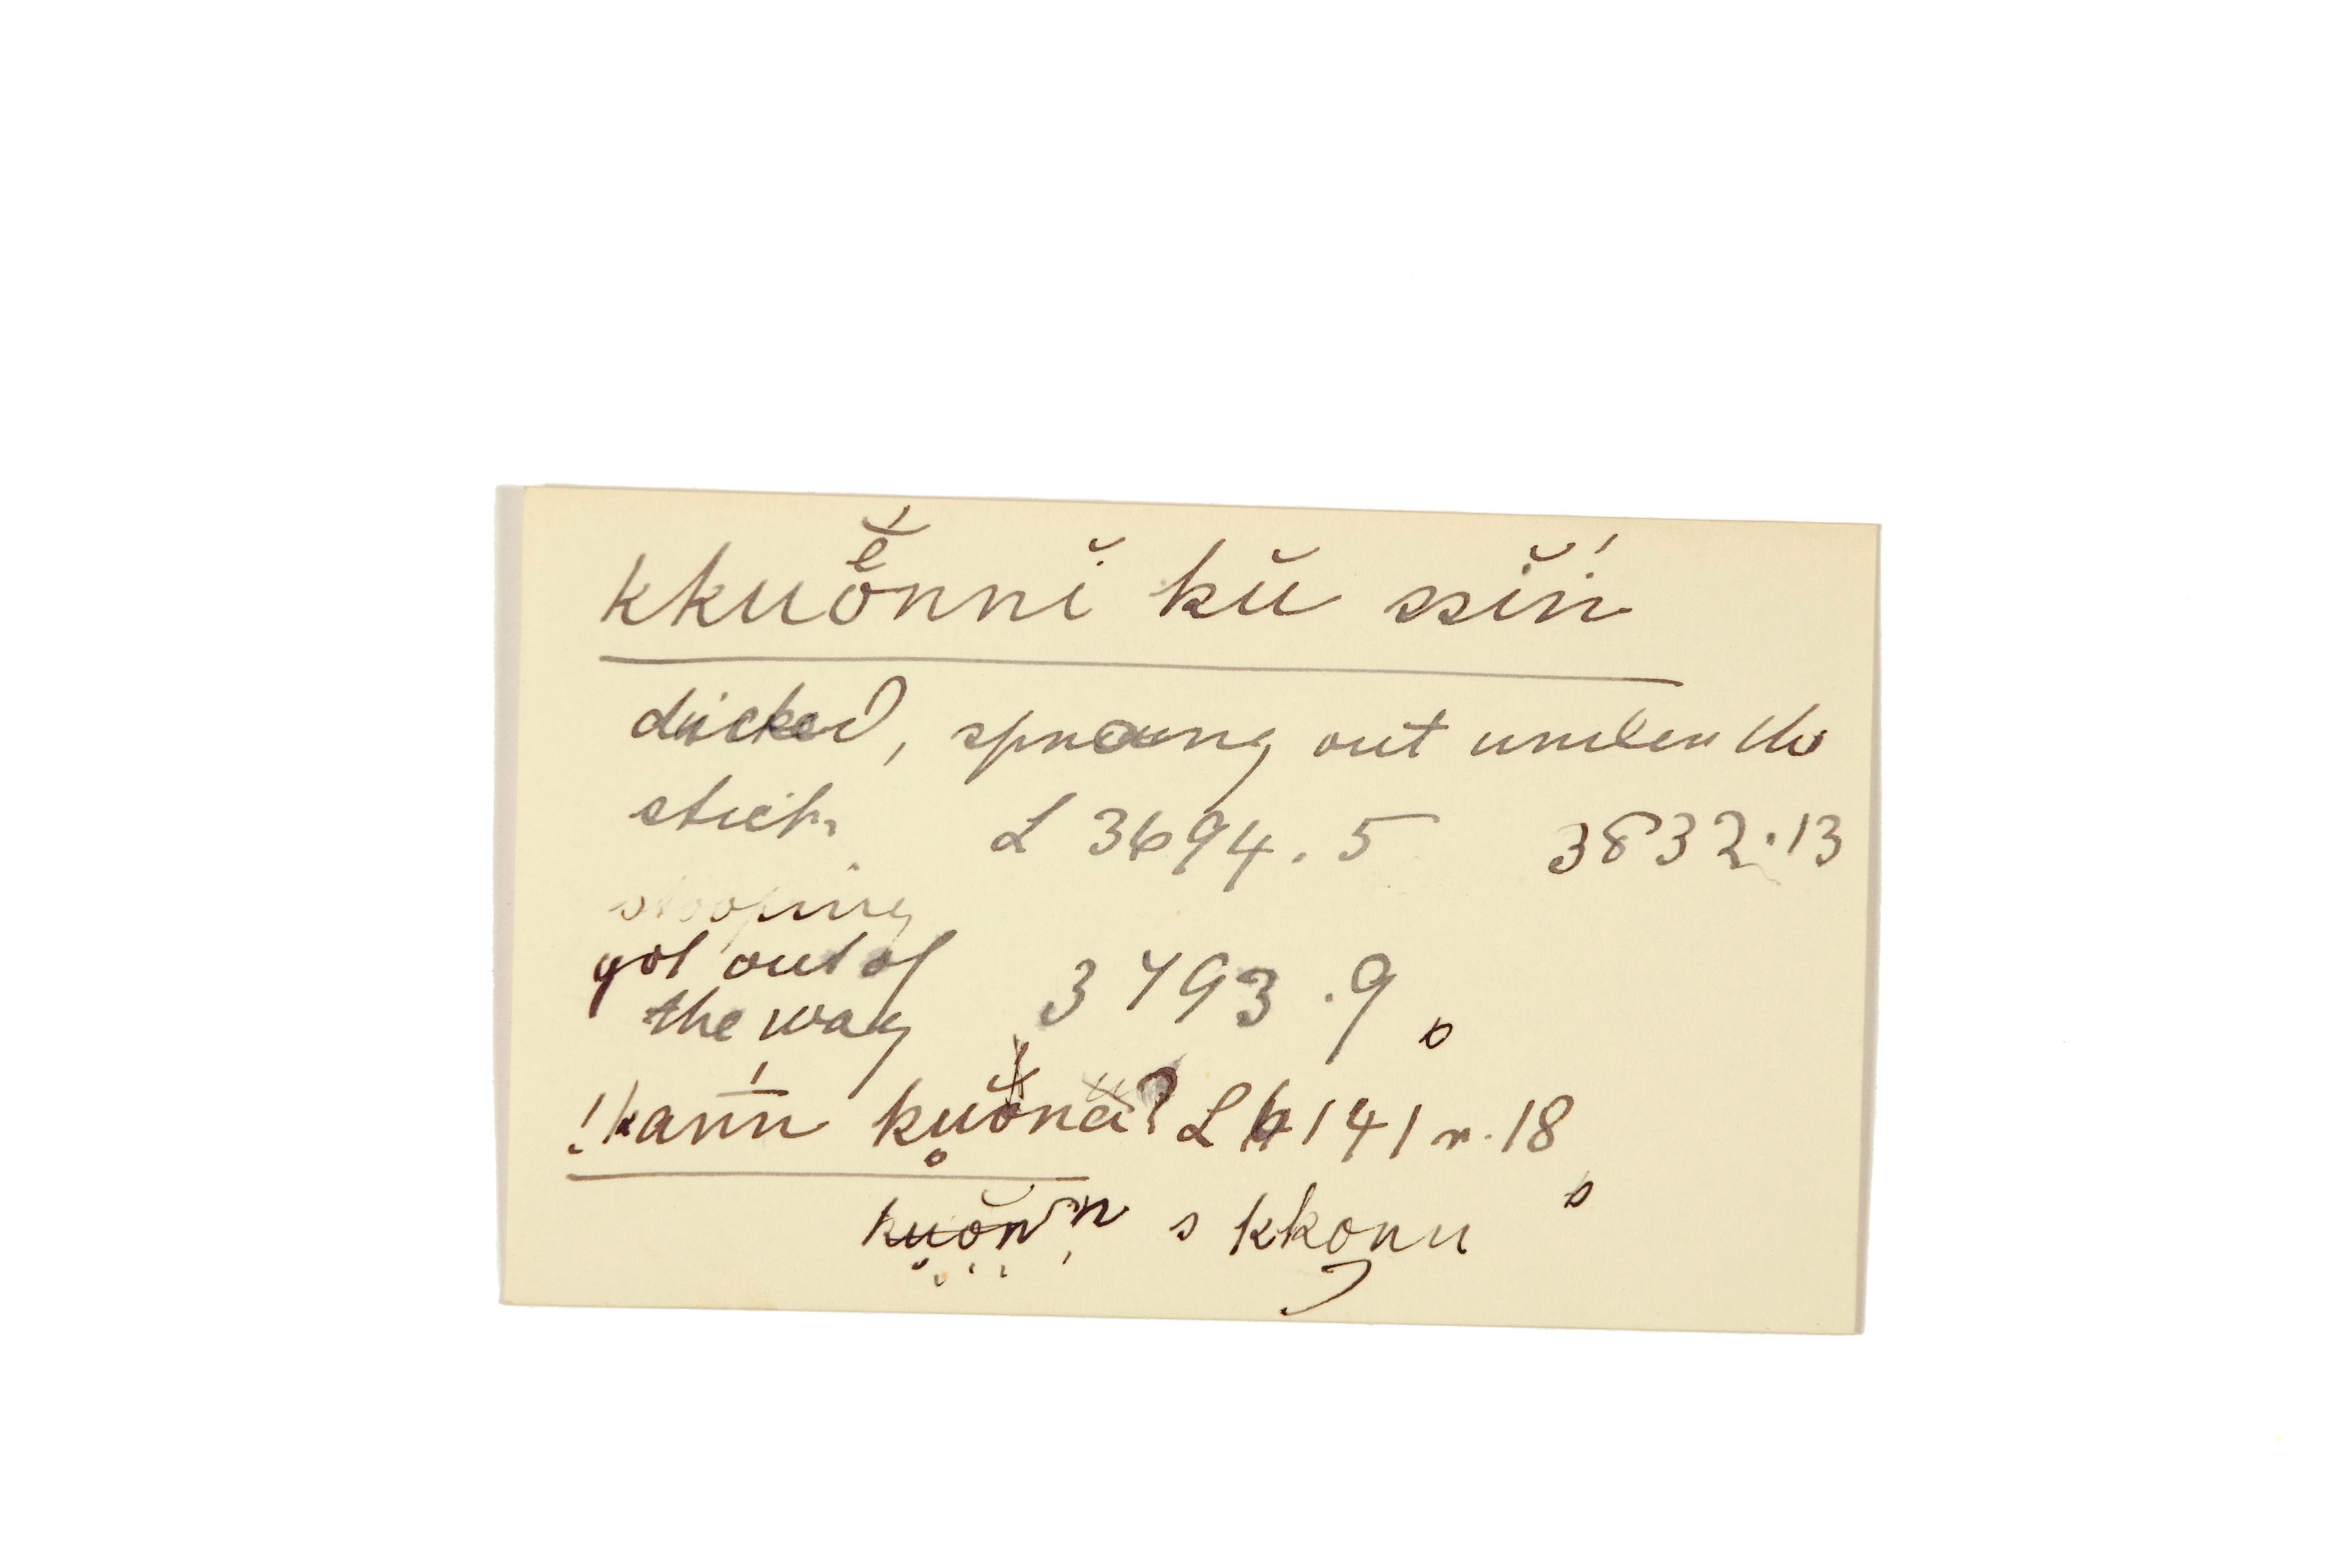 kkuŏ́nnĭ kŭ ssĭń
ducked, sprang out under the
stick L 3694.5 3832.13
stooping
got out of
the way 3793.9
!kann kuŏna? L 6141 r. 18
kuŏn n s kkonu